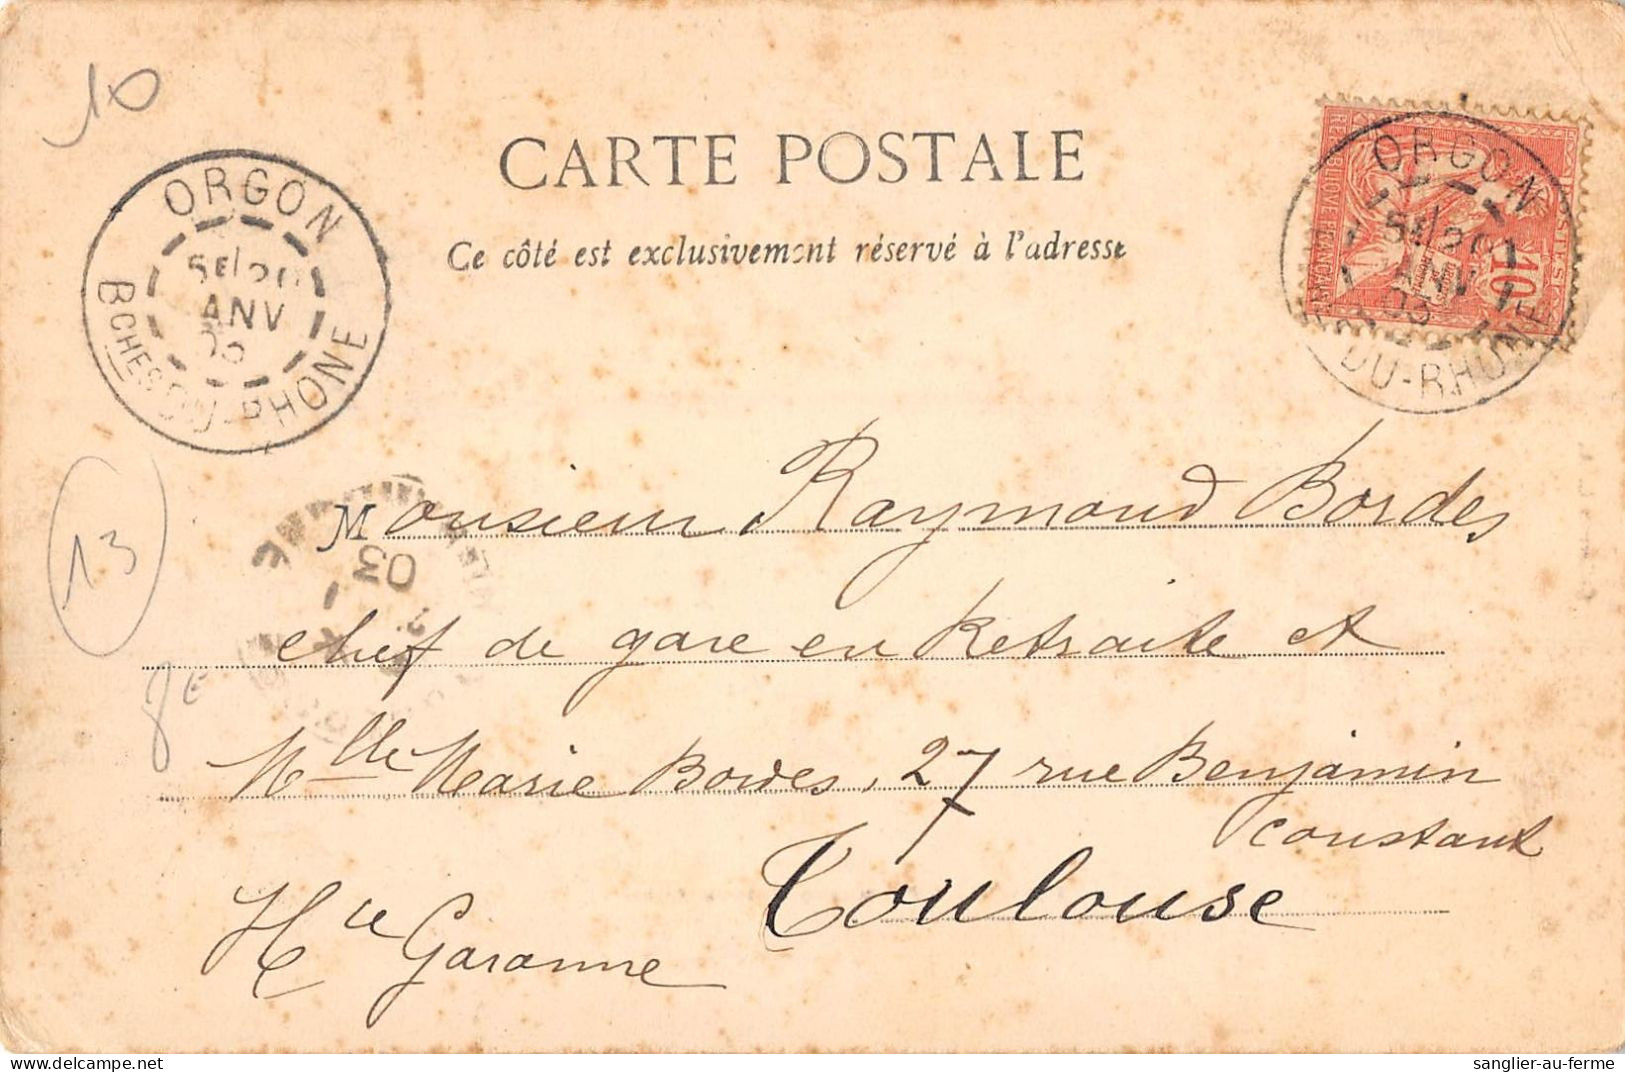 10
CARTE POSTALE
Ce côté est exclusivement réservé à l'adresse
ORGON
5E/20
JANV
03
BCHES DU-RHONE
ORGON
5E/20
JANV
03
DU-RHONE
REPUBLIQUE FRANÇAISE
POSTES
10
13
03
Monsieur Raymond Bordes
chef de gare en Retraite et
Mlle Marie Bordes, 27 rue Benjamin
Constant
Toulouse
Hte Garonne
delcampe.net
sanglier-au-ferme